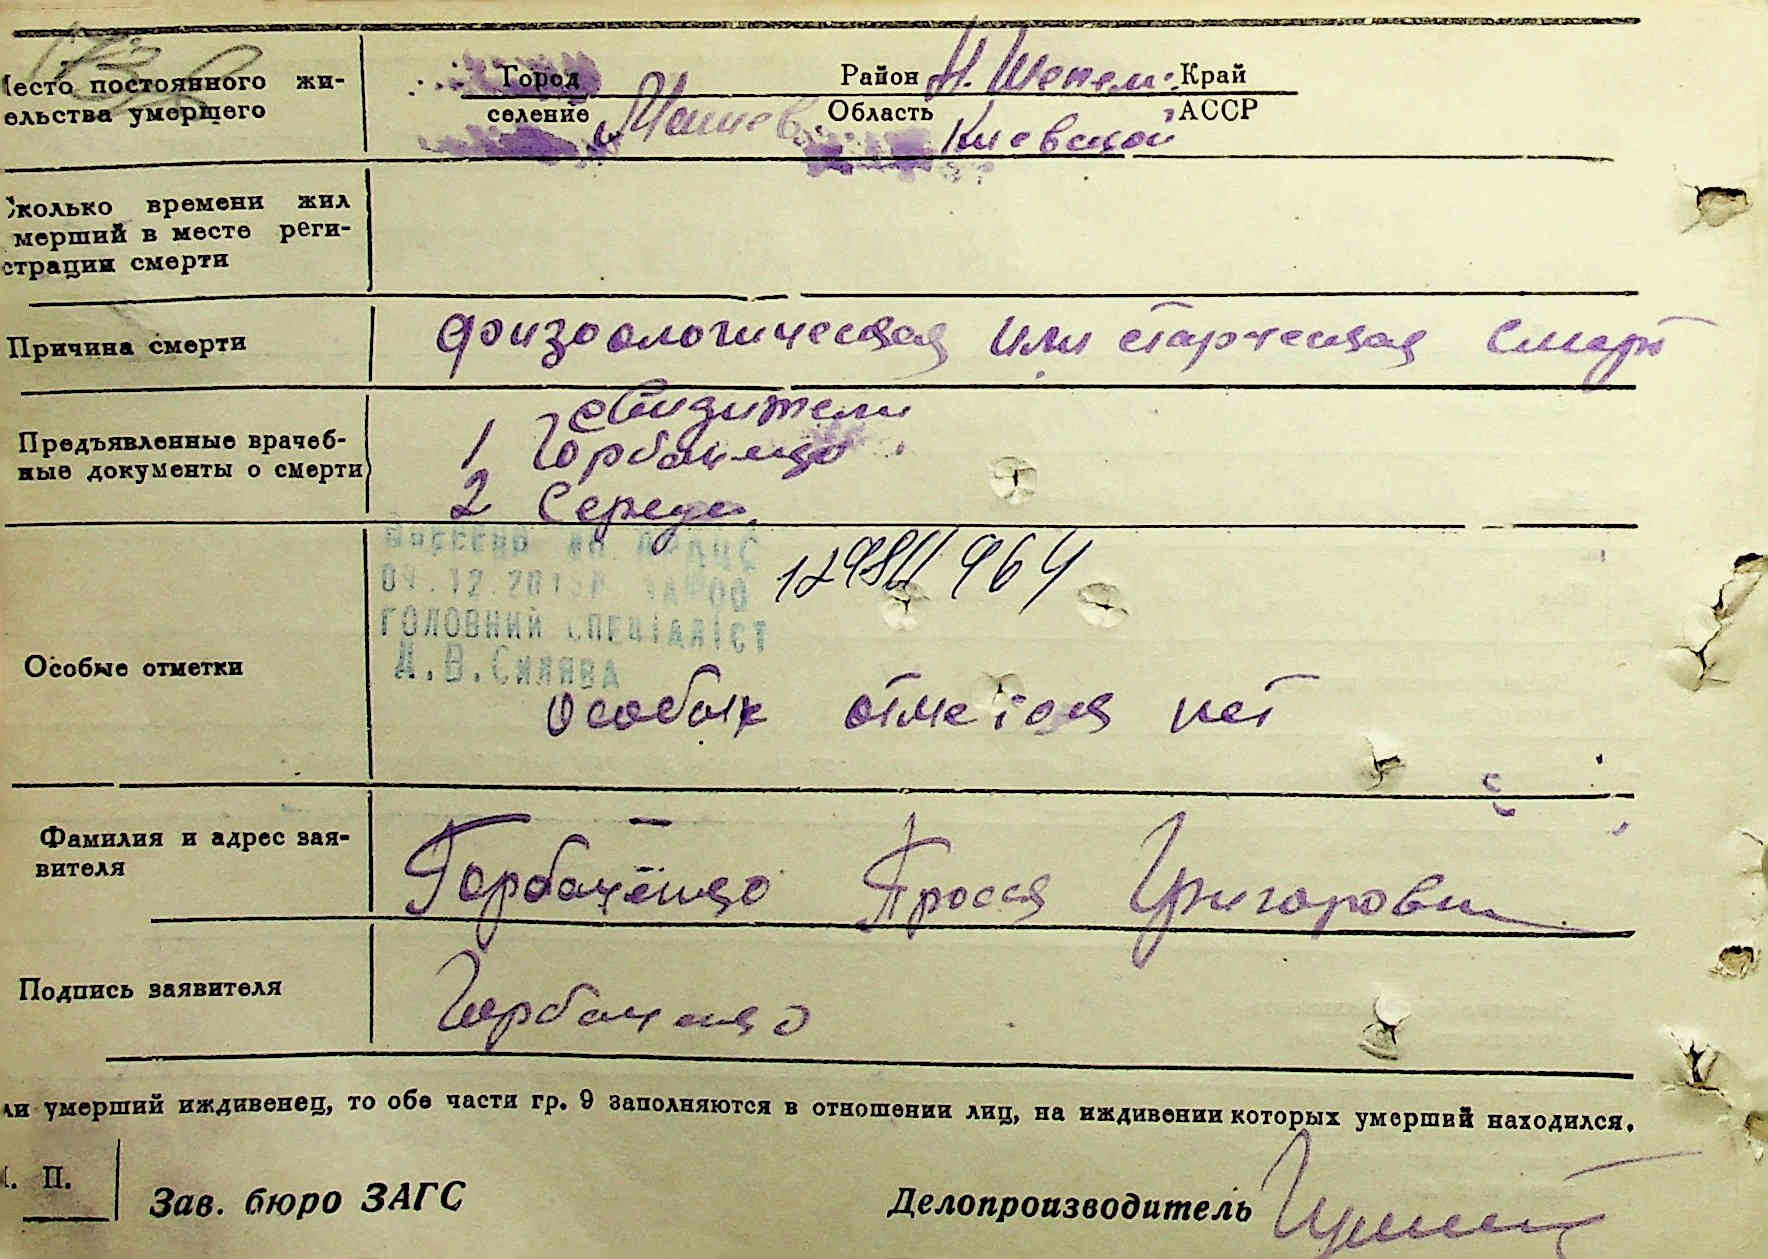 173
Место постоянного жи-
ельства умершего
Город
Район Н. Шепел. Край
селение
Область Киевской АССР
Сколько времени жил
мерший в месте реги-
страции смерти
Причина смерти
физоологическая или старческая смерт
Предъявленные врачеб-
ные документы о смерти
свидители
1 Горбаченко
2 Середа
12984964
ГОЛОВНИЙ СПЕЦІАЛІСТ
Особые отметки
особых отметок нет
Фамилия и адрес зая-
вителя
Горбаченко Прося Григоровн
Подпись заявителя
Горбаченко
ли умерший иждивенец, то обе части гр. 9 заполняются в отношении лиц, на иждивении которых умерший находился.
П.
Зав. бюро ЗАГС
Делопроизводитель